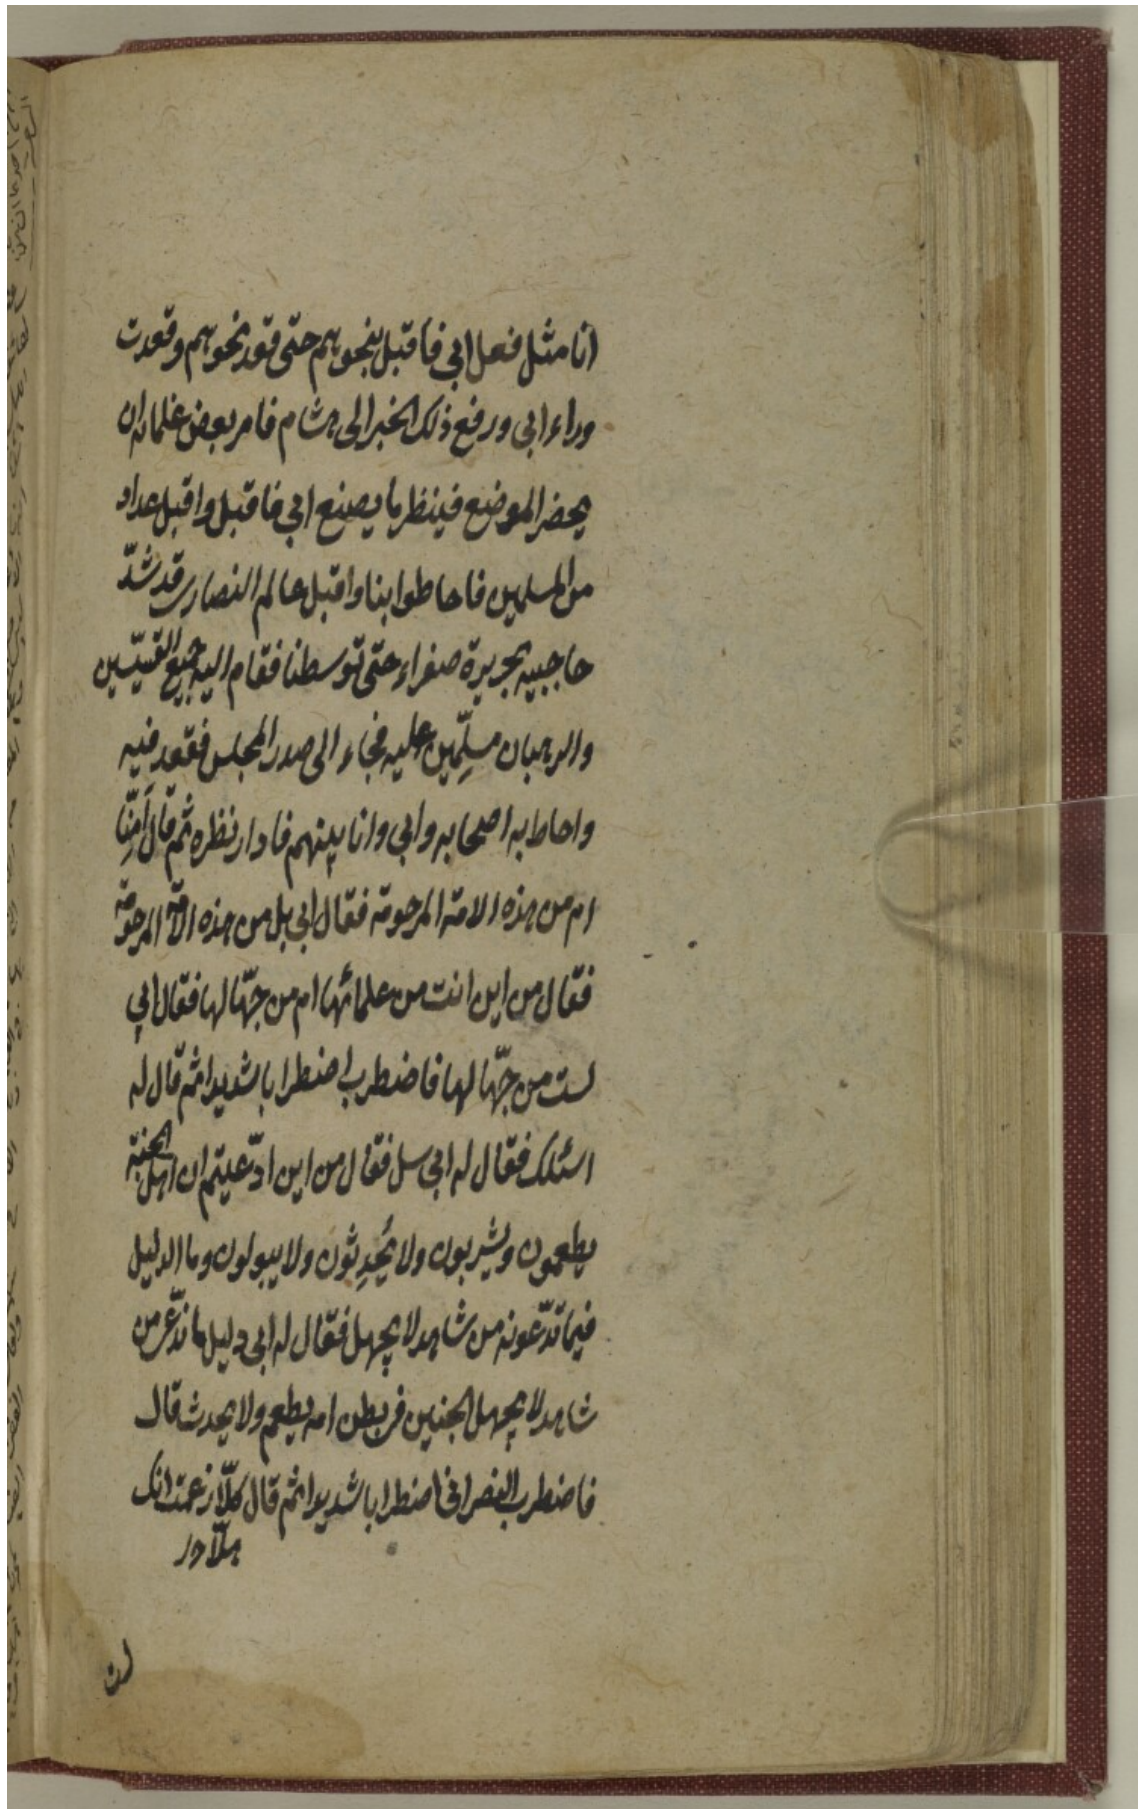 انا مثل فعل ابي فاقبل نحوهم حتى قعد نحوهم وقعدت
وراء ابي ورفع ذلك الخبر الى هشام فامر بعض غلمانه ان
يحضر الموضع فينظر ما يصنع ابي فاقبل واقبل عداد
من المسلمين فاحاطوا بنا واقبل عالم النصارى قد شدّ
حاجبيه بحريرة صفراء حتى توسطنا فقام اليه جميع القسّيسين
والرهبان مسلِّمين عليه فجاء الى صدر المجلس فقعد فيه
واحاط به اصحابه وابي وانا بينهم فادار نظره ثم قال أمِنّا
ام من هذه الامة المرحومة فقال ابي بل من هذه الامّة المرحومة
فقال من اين انت من علمائها ام من جهّالها فقال ابي
لست من جهّالها فاضطرب اضطرابا شديدا ثم قال له
اسئلك فقال له ابي سل فقال من اين ادّعيتم ان اهل الجنة
يطعمون ويشربون ولا يُحدِثون ولا يبولون وما الدليل
فيما تدّعونه من شاهد لا يجهل فقال له ابي دليل ما ندّعى من
شاهد لا يجهل الجنين فى بطن امه يطعم ولا يحدث قال
فاضطرب النصرانى اضطرابا شديدا ثم قال كلّا زعمت انك